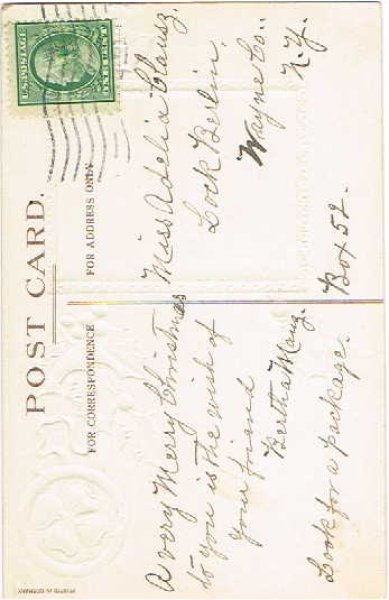 POST CARD.
FOR CORRESPONDENCE
FOR ADDRESS ONLY
U.S. POSTAGE
ONE CENT
A very Merry Christmas
to you is the wish of
your friend
Bertha Mang.
Look for a package.
Miss Adelia Clausz.
Lock Berlin.
Wayne Co..
N.Y.
Box 52.
PRINTED IN GERMANY